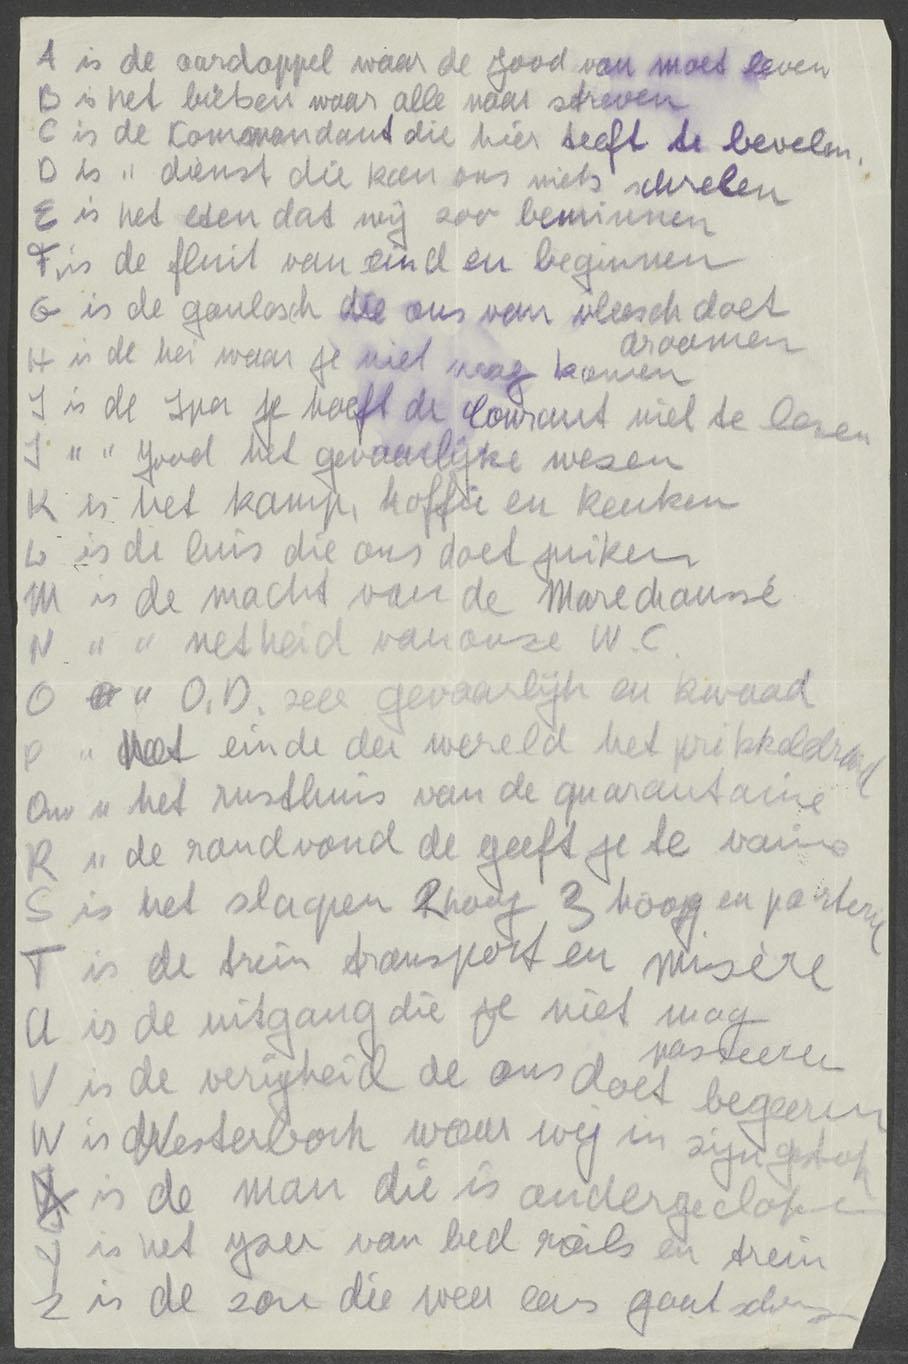 A is de aardappel waar de Jood van moet leven
B is het bietsen waar alle naar streven
C is de Kommandant die hier heeft te bevelen.
D is " dienst die kan ons niets schelen
E is het eten dat wij zoo beminnen
F. is de fluit van eind en beginnen
G is de goulasch die ons van vleesch doet
droomen
H is de hei waar je niet mag komen
I is de Ipa je hoeft de Courant niet te lezen
J " " Jood het gevaarlijke wezen
K is het kamp, koffie en keuken
L is de luis die ons doet jeuken
M is de macht van de Marechaussé
N " " netheid van onze W.C.
O " O.D. zeer gevaarlijk en kwaad
P " Het einde der wereld het prikkeldraad
Qu " het rusthuis van de quarantaine
R " de rondvond de geeft je te
S is het slapen 2 hoog 3 hoog en parterre
T is de trein transport en misère
U is de uitgang die je niet mag
passeeren
V is de verijheid de ons doet begeeren
W is Westerbork waar wij in zijn gestopt
X is de man die is ondergedoken
Y is het yzer van bed rails en trein
Z is de zon die weer eens gaat schijnen